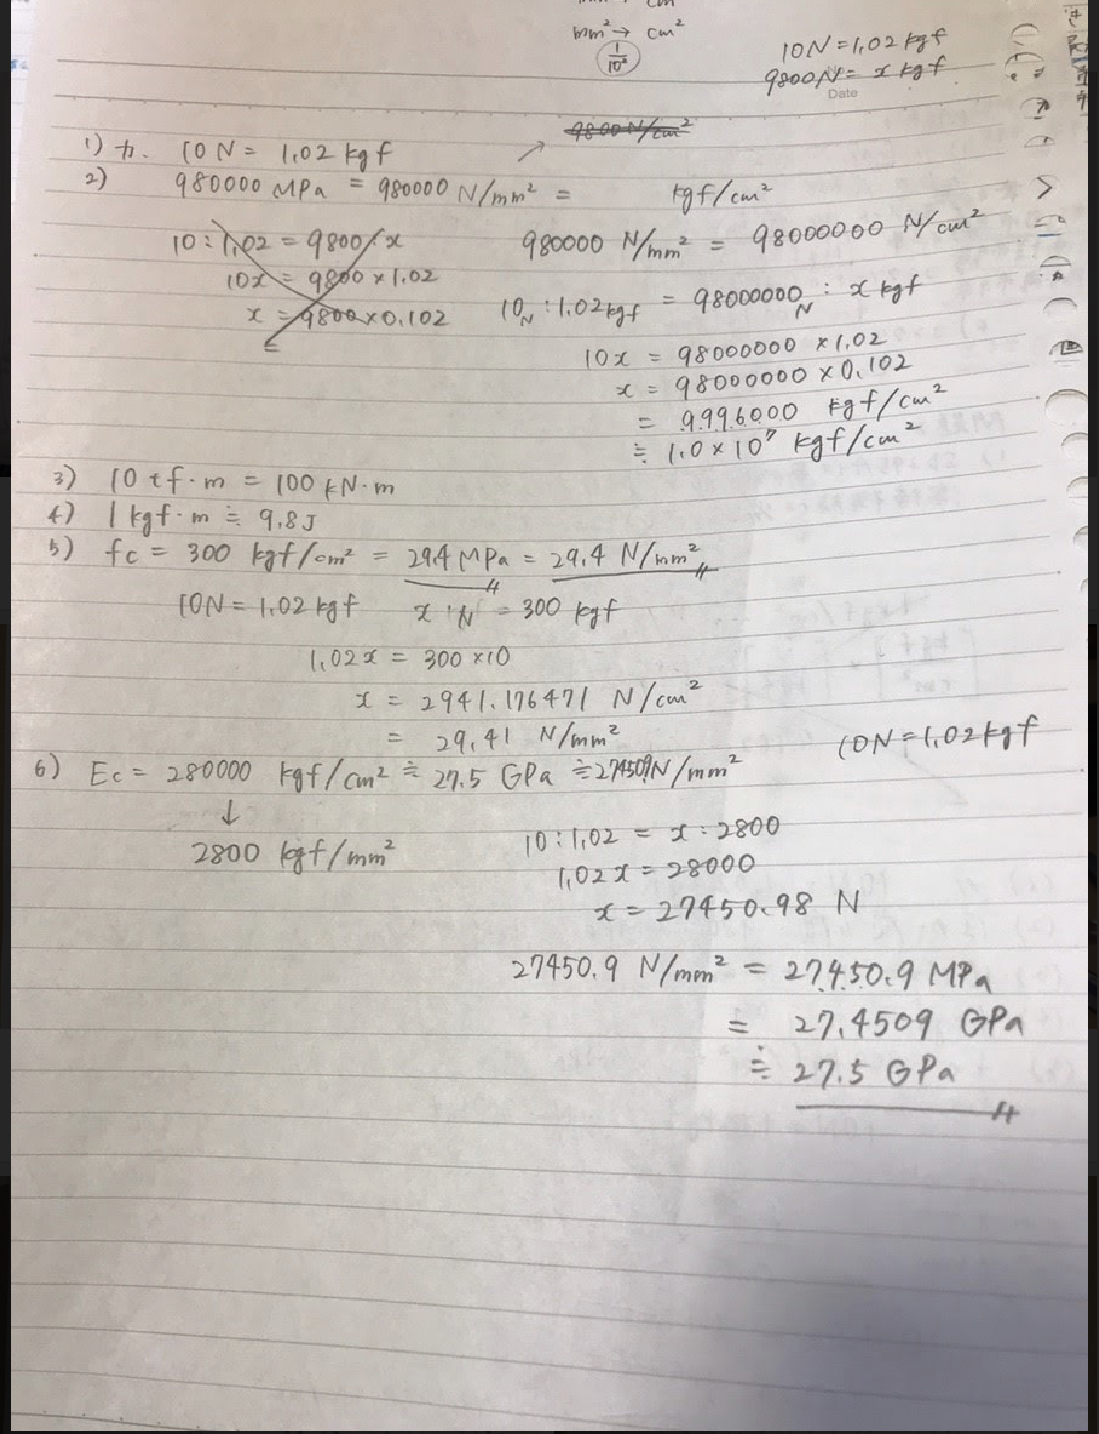 mm² → cm²
1/10²
10N = 1.02 kgf
9800N = x kgf
Date
9800 N/cm²
1) 力. 10 N = 1.02 kgf
2) 980000 MPa = 980000 N/mm² = kgf/cm²
10 : 1.02 = 9800 / x
980000 N/mm² = 98000000 N/cm²
10x = 9800 × 1.02
10N : 1.02kgf = 98000000N : x kgf
x = 9800 × 0.102
10x = 98000000 × 1.02
x = 98000000 × 0.102
= 9996000 kgf/cm²
≒ 1.0 × 10⁷ kgf/cm²
3) 10 tf·m = 100 kN·m
4) 1 kgf·m ≒ 9.8J
5) fc = 300 kgf/cm² = 29.4 MPa = 29.4 N/mm²
10N = 1.02 kgf x N = 300 kgf
1.02x = 300 × 10
x = 2941.176471 N/cm²
= 29.41 N/mm²
10N = 1.02kgf
6) Ec = 280000 kgf/cm² ≒ 27.5 GPa ≒ 27450.9N/mm²
↓
2800 kgf/mm²
10 : 1.02 = x : 2800
1.02x = 28000
x = 27450.98 N
27450.9 N/mm² = 27450.9 MPa
= 27.4509 GPa
≒ 27.5 GPa